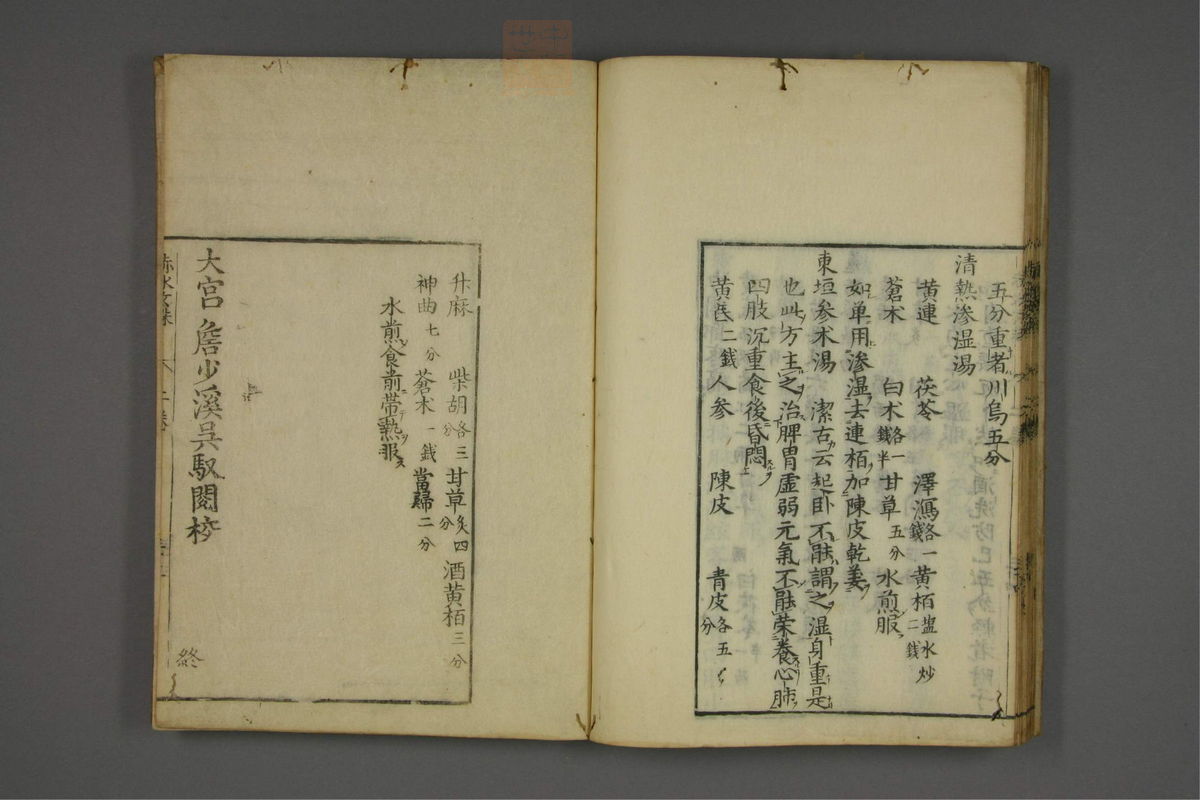 五分重者川烏五分
清熱渗湿湯
黄連 茯苓 澤瀉各一錢 黄栢塩水炒二錢
蒼木 白木各一錢半 甘草五分 水煎服
如単用渗湿去連栢加陳皮乾姜
東垣参术湯 潔古云起卧不能謂之湿身重是
也此方主之治脾胃虚弱元氣不能荣養心肺
四肢沉重食後昏悶
黄芪二錢 人参 陳皮 青皮各五分
升麻 柴胡各三分 甘草炙四分 酒黄栢三分
神曲七分 蒼木一錢 當歸二分
水煎食前帯熱服
大宫詹少溪吴馭閲梓
終
赤水玄珠